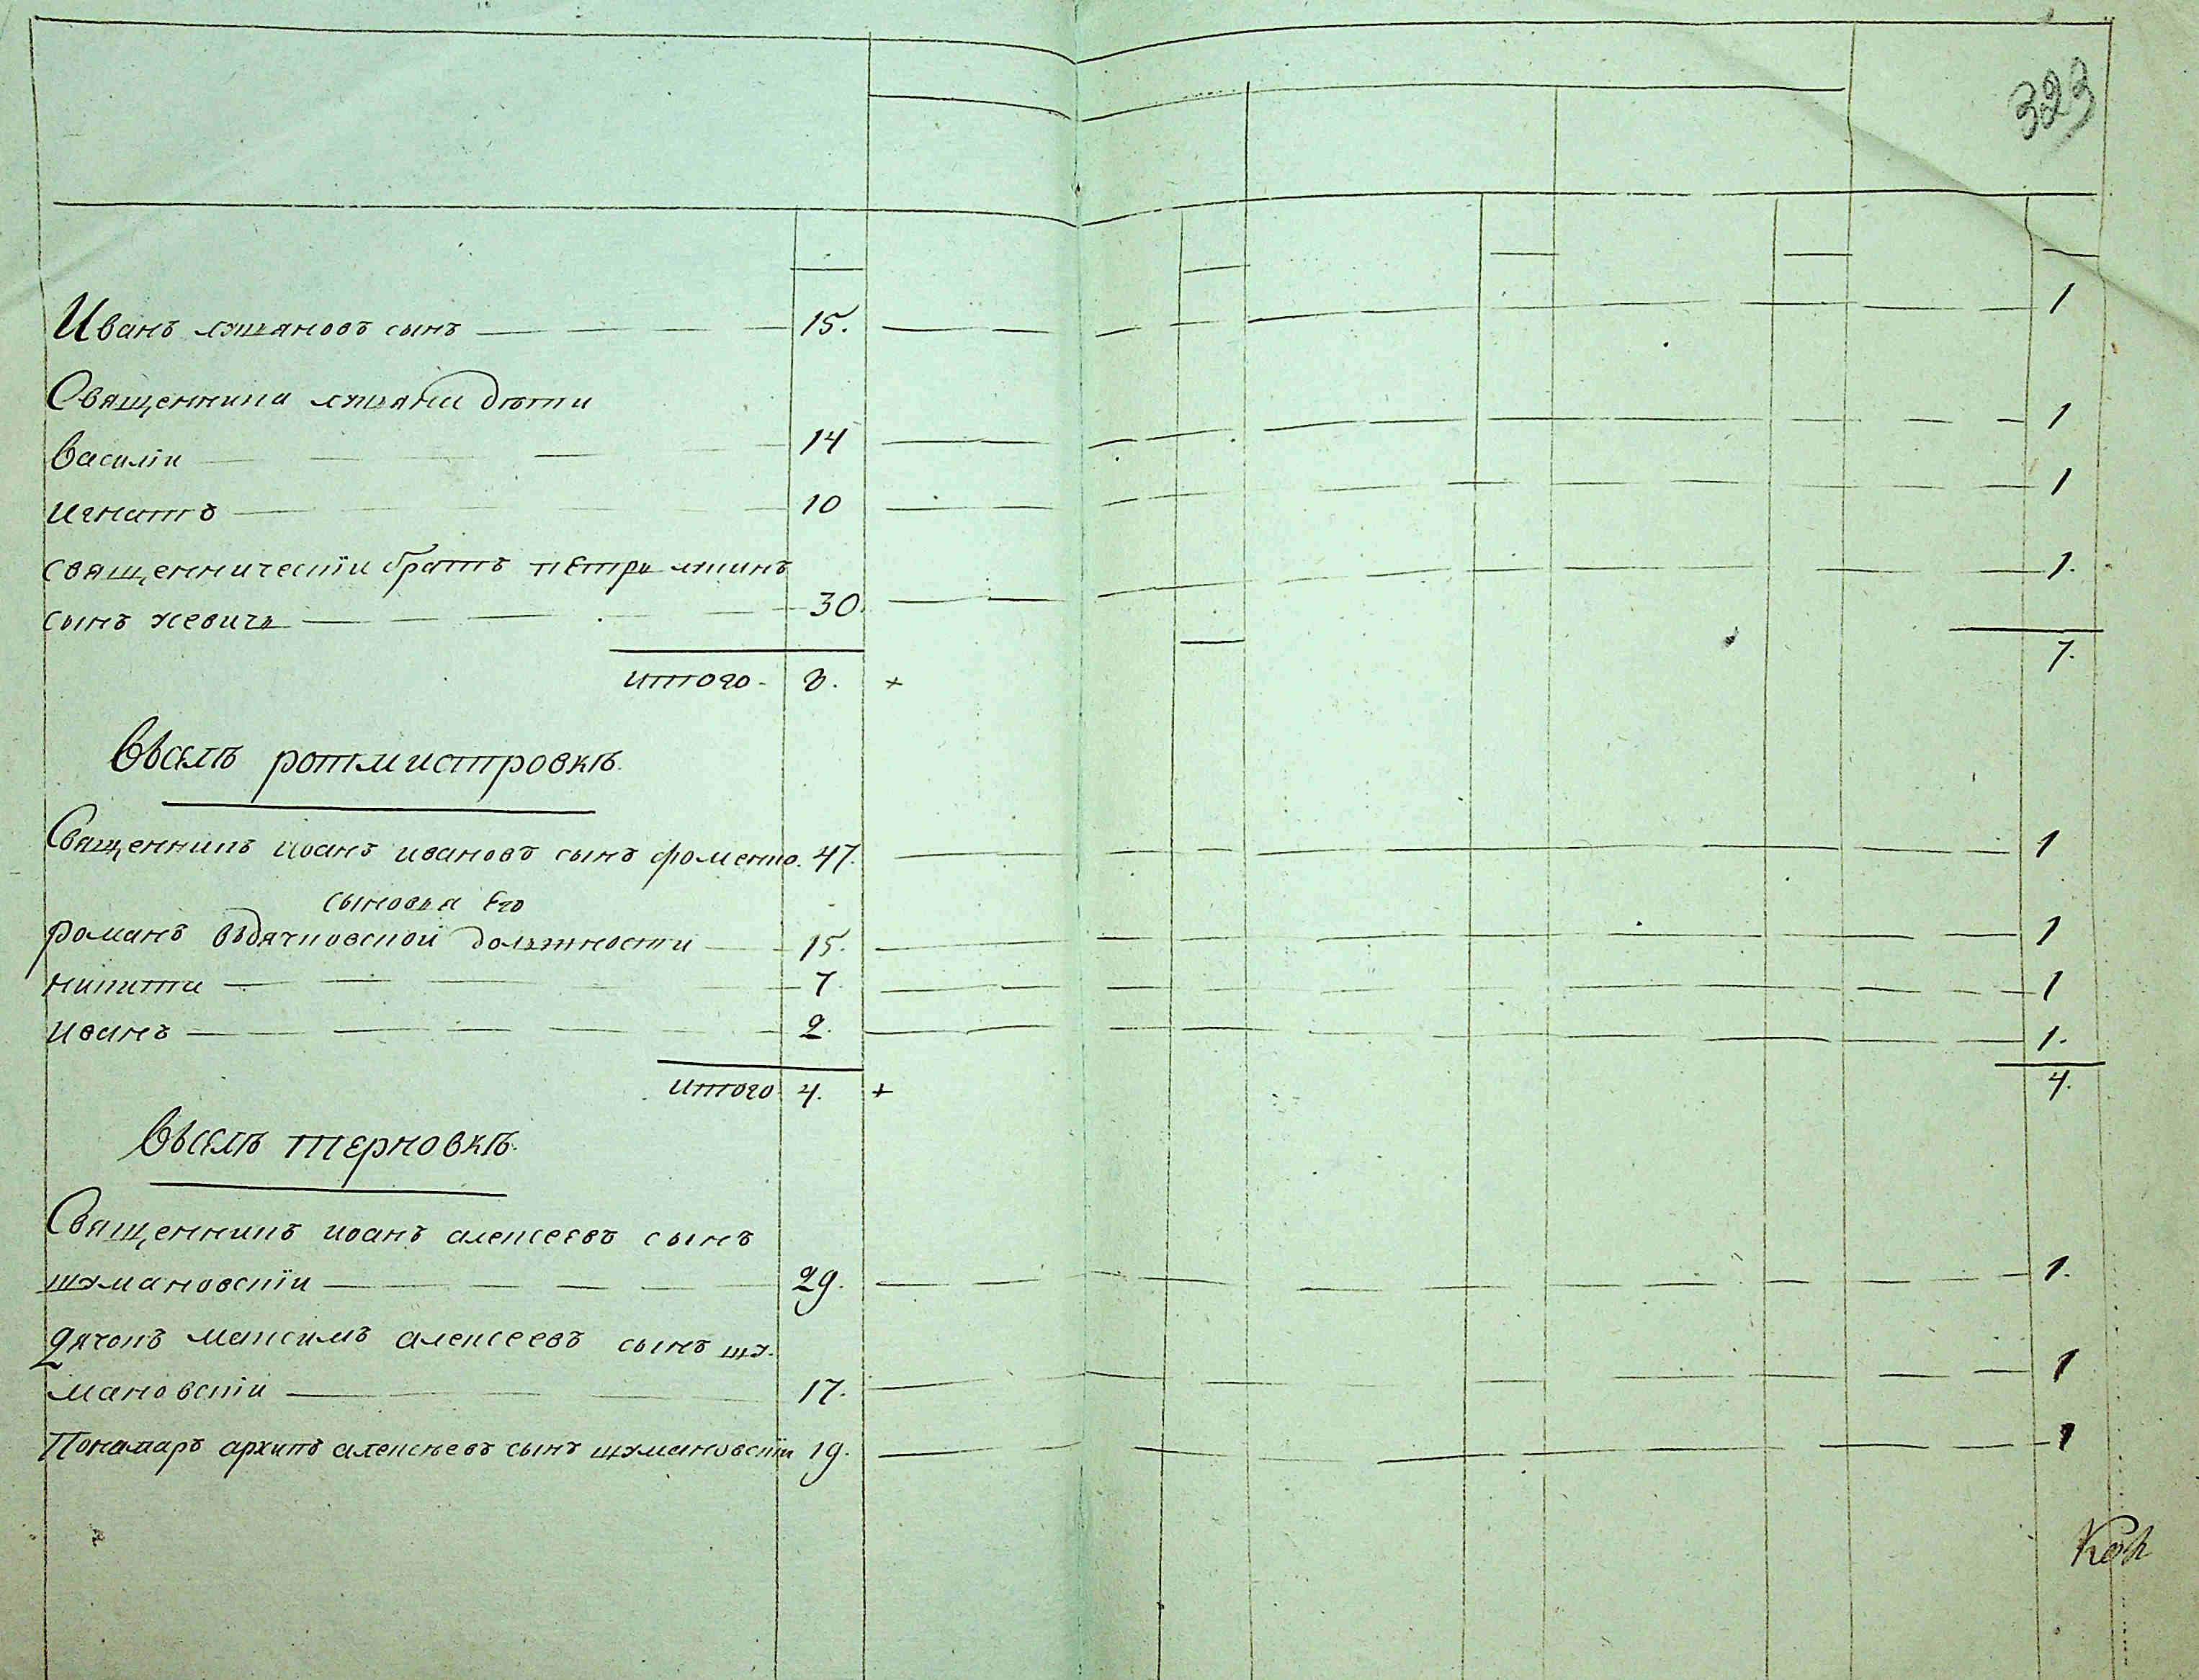 323
Иванъ лукяновъ сынъ 15. 1
Священника лукяна дѣти
василіи 14 1
игнатъ 10 1
священническїи братъ пЕтръ лукинъ
сынъ жевичъ 30. 1.
итого 8. + 7.
ВЬселѣ ротмистровкѣ.
Священникъ иоанъ ивановъ сынъ фоменко. 47. 1
сыновья Его
романъ вЪдячковской должности 15. 1
никита 7 1
иванъ 2. 1.
итого 4. + 4.
ВЬселѣ терновкѣ.
Священникъ иоанъ алексеевъ сынъ
шумановскїи 29. 1.
Дячокъ максимъ алексеевъ сынъ шу.
мановскїи 17. 1
Понамарь архипъ алексѣевъ сынъ шумановскїи 19. 1